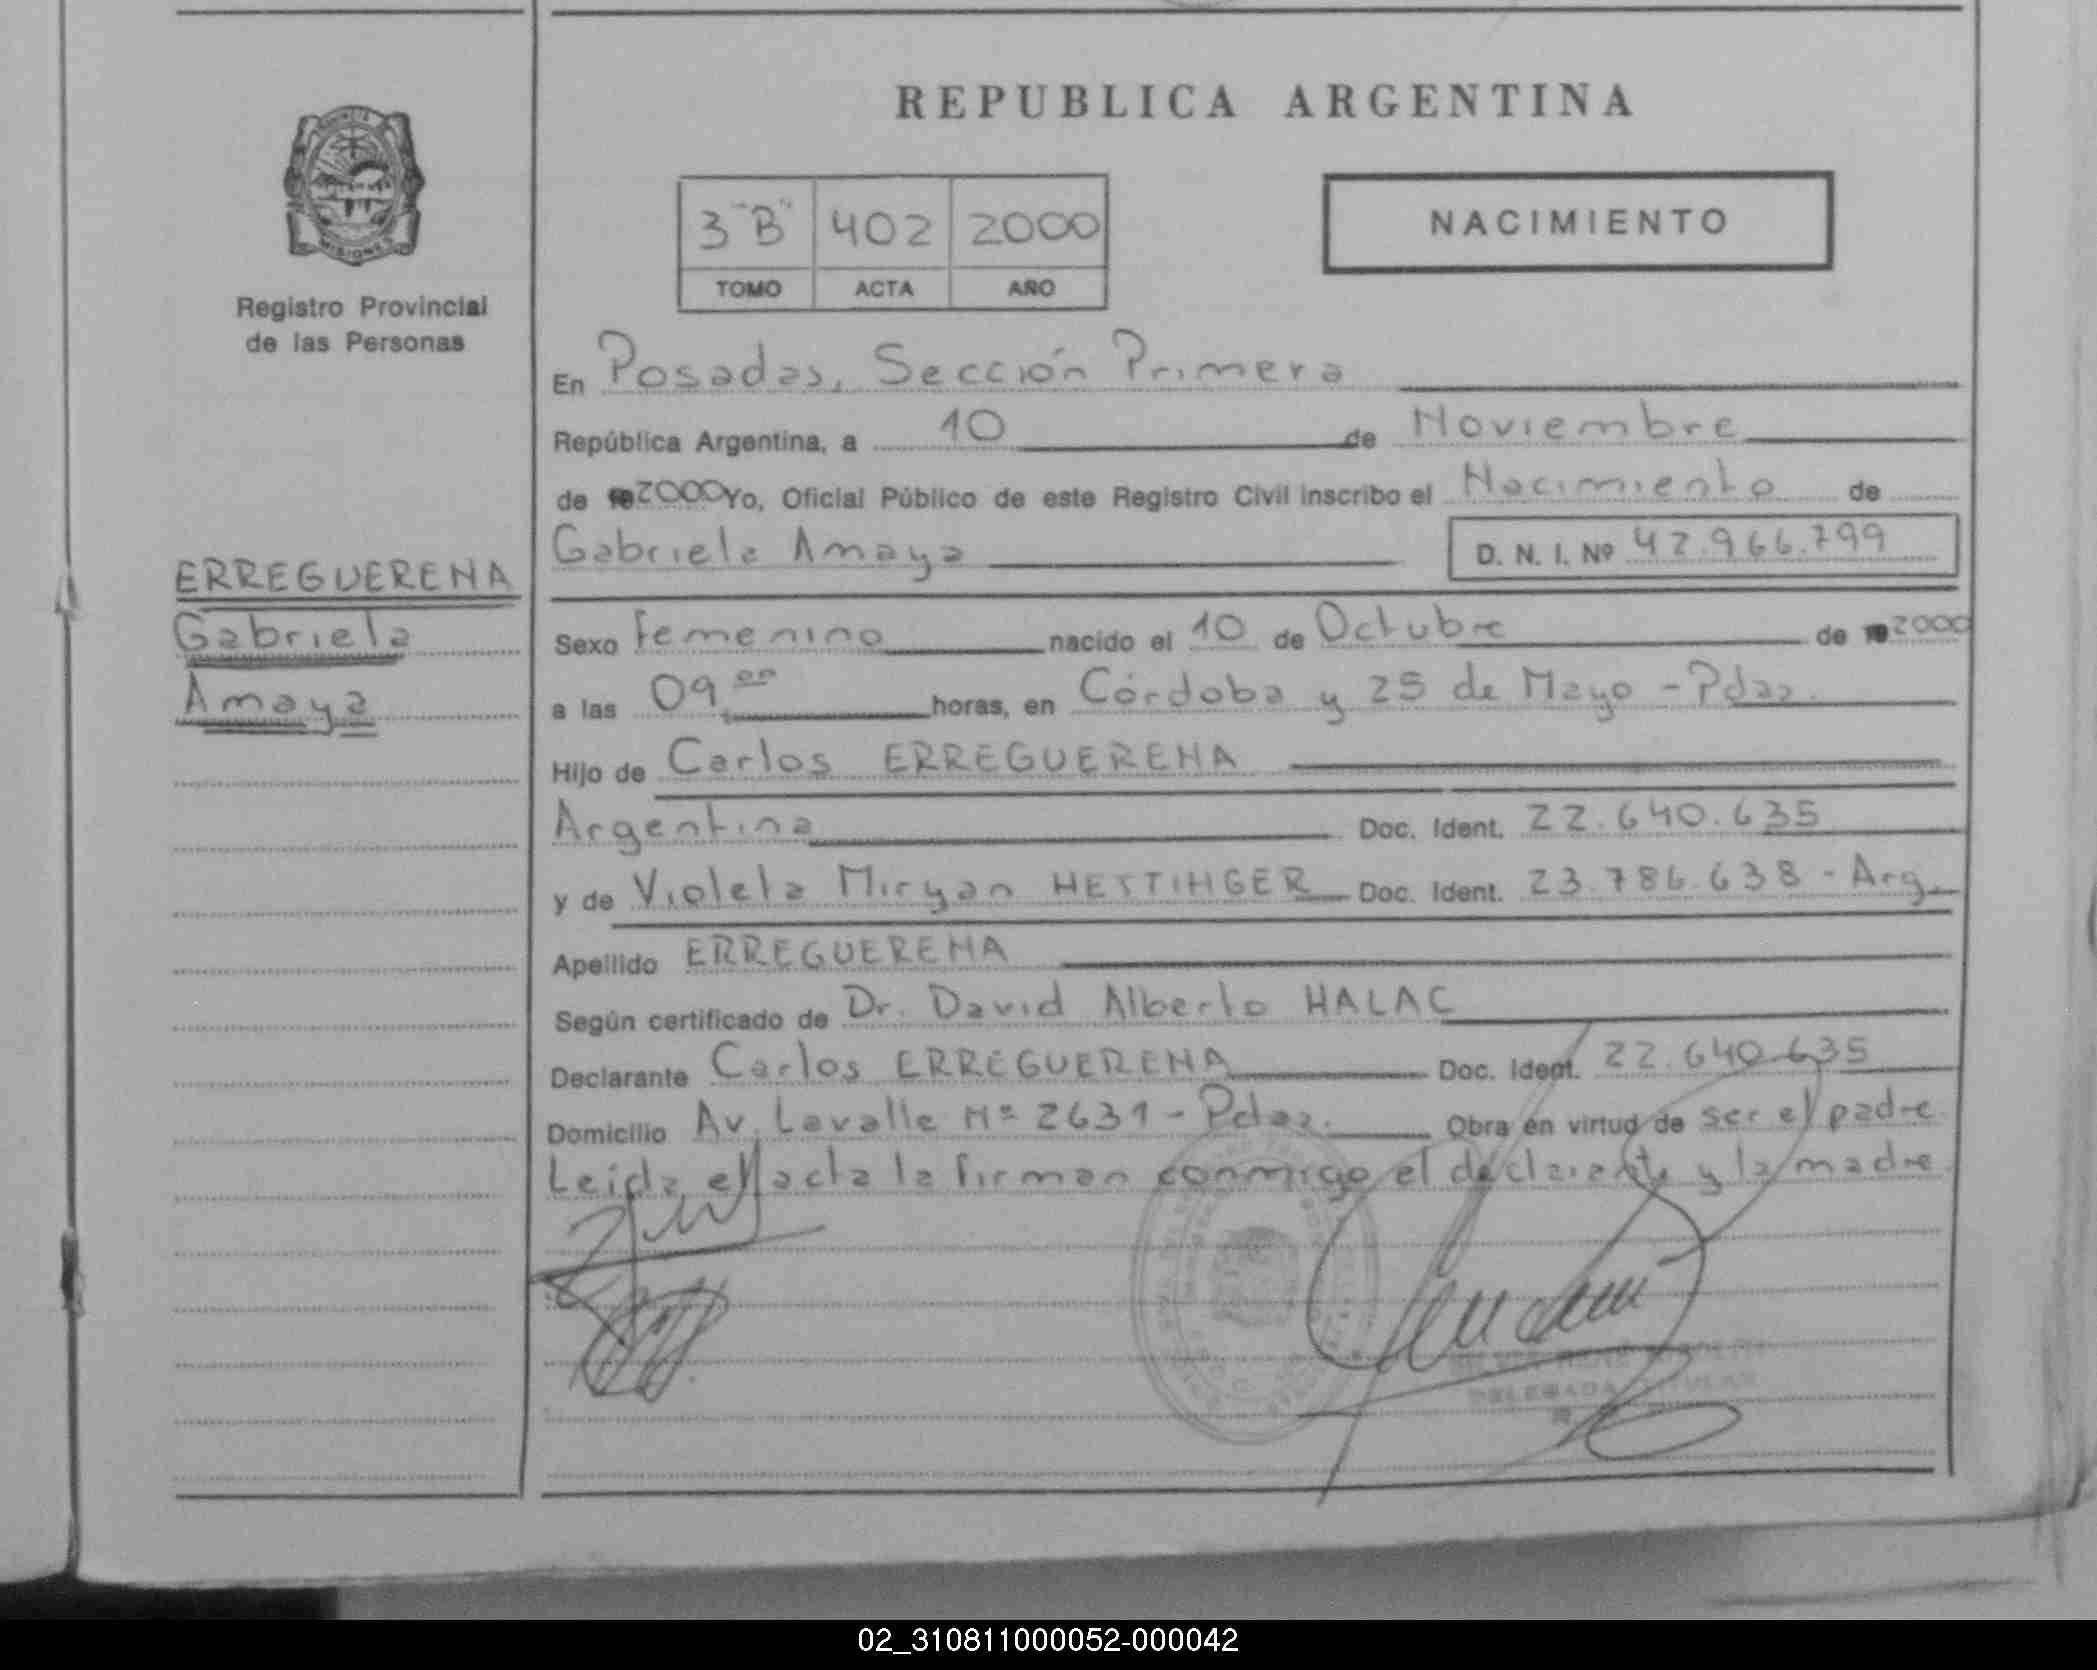 REPUBLICA ARGENTINA
3 "B" 402 2000
TOMO ACTA AÑO
NACIMIENTO
MISIONES
Registro Provincial
de las Personas
ERREGUERENA
Gabriela
Amaya
En Posadas, Sección Primera
República Argentina, a 10 de Noviembre
de 2000 Yo, Oficial Público de este Registro Civil inscribo el Nacimiento de
Gabriela Amaya D. N. I. Nº 42.966.799
Sexo Femenino nacido el 10 de Octubre de 2000
a las 09 00 horas, en Córdoba y 25 de Mayo - Pdas.
Hijo de Carlos ERREGUERENA
Argentina Doc. Ident. 22.640.635
y de Violeta Miryan HETTINGER Doc. Ident. 23.786.638 - Arg.
Apellido ERREGUERENA
Según certificado de Dr. David Alberto HALAC
Declarante Carlos ERREGUERENA Doc. Ident. 22.640.635
Domicilio Av. Lavalle Nº 2631 - Pdas. Obra en virtud de ser el padre
Leída el acta la firman conmigo el declarante y la madre
DELEGADA TITULAR
02_310811000052-000042